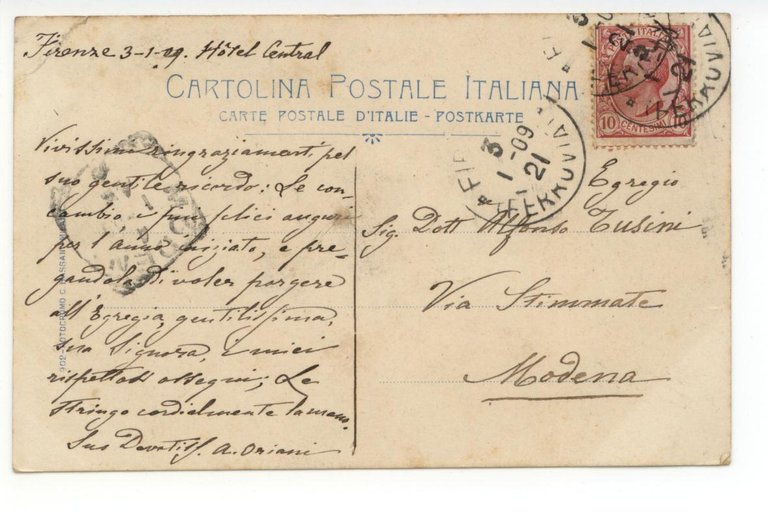 Firenze 3-1-09. Hôtel Central
CARTOLINA POSTALE ITALIANA
CARTE POSTALE D'ITALIE - POSTKARTE
Vivissimi ringraziamenti pel
suo gentile ricordo: Le con-
cambio i più felici auguri
per l'anno iniziato, e pre-
gandola di voler porgere
all'Egregia, gentilissima,
sua Signora, i miei
rispettosi ossequi, Le
stringo cordialmente la mano.
Suo Devotiss. A. Oriani
Egregio
Sig. Dott Alfonso Tusini
Via Stimmate
Modena
POSTE ITALIANE
10 CENTESIMI
3 1-09 21
FERROVIA